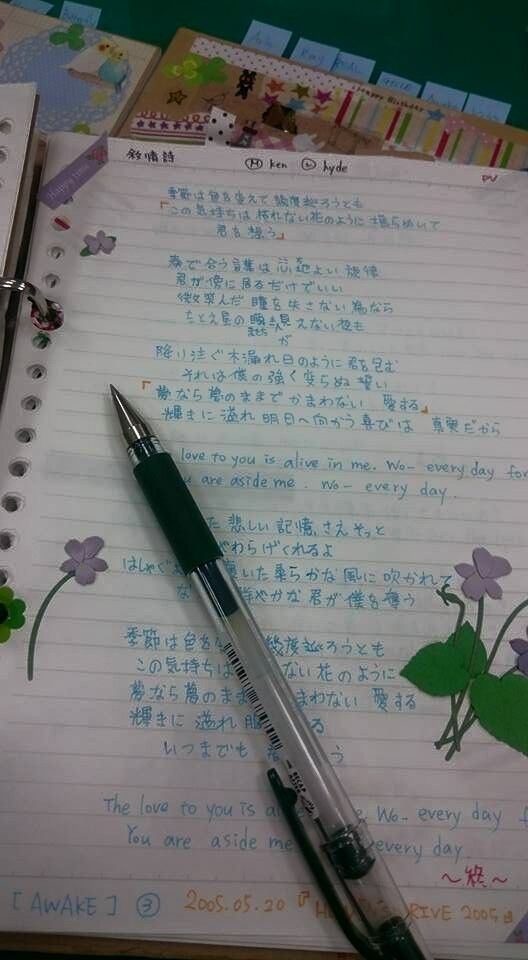 Happy Birthday
Happy time
敘情詩 Ⓜ ken Ⓛ hyde
季節は色を変えて幾度巡ろうとも
「この気持ちは枯れない花のように揺らめいて
君を想う」
奏で合う言葉は心地よい旋律
君が傍に居るだけでいい
微笑んだ瞳を失さない為なら
たとえ星の瞬きが見えない夜も
降り注ぐ木漏れ日のように君を包む
それは僕の強く変らぬ誓い
「夢なら夢のままでかまわない 愛する」
輝きに溢れ明日へ向かう喜びは 真実だから
love to you is alive in me. Wo- every day for
you are aside me. Wo- every day..
た 悲しい記憶さえそっと
やわらげくれるよ
はしゃぐ いた柔らかな風に吹かれて
な やかな君が僕を奪う
季節は色を 幾度巡ろうとも
この気持ちは ない花のように
夢なら夢のまま まわない 愛する
輝きに溢れ る
いつまでも う
The love to you is e. Wo- every day f
You are aside me every day..
～終～
[AWAKE] ③ 2005.05.20 『 RIVE 2005